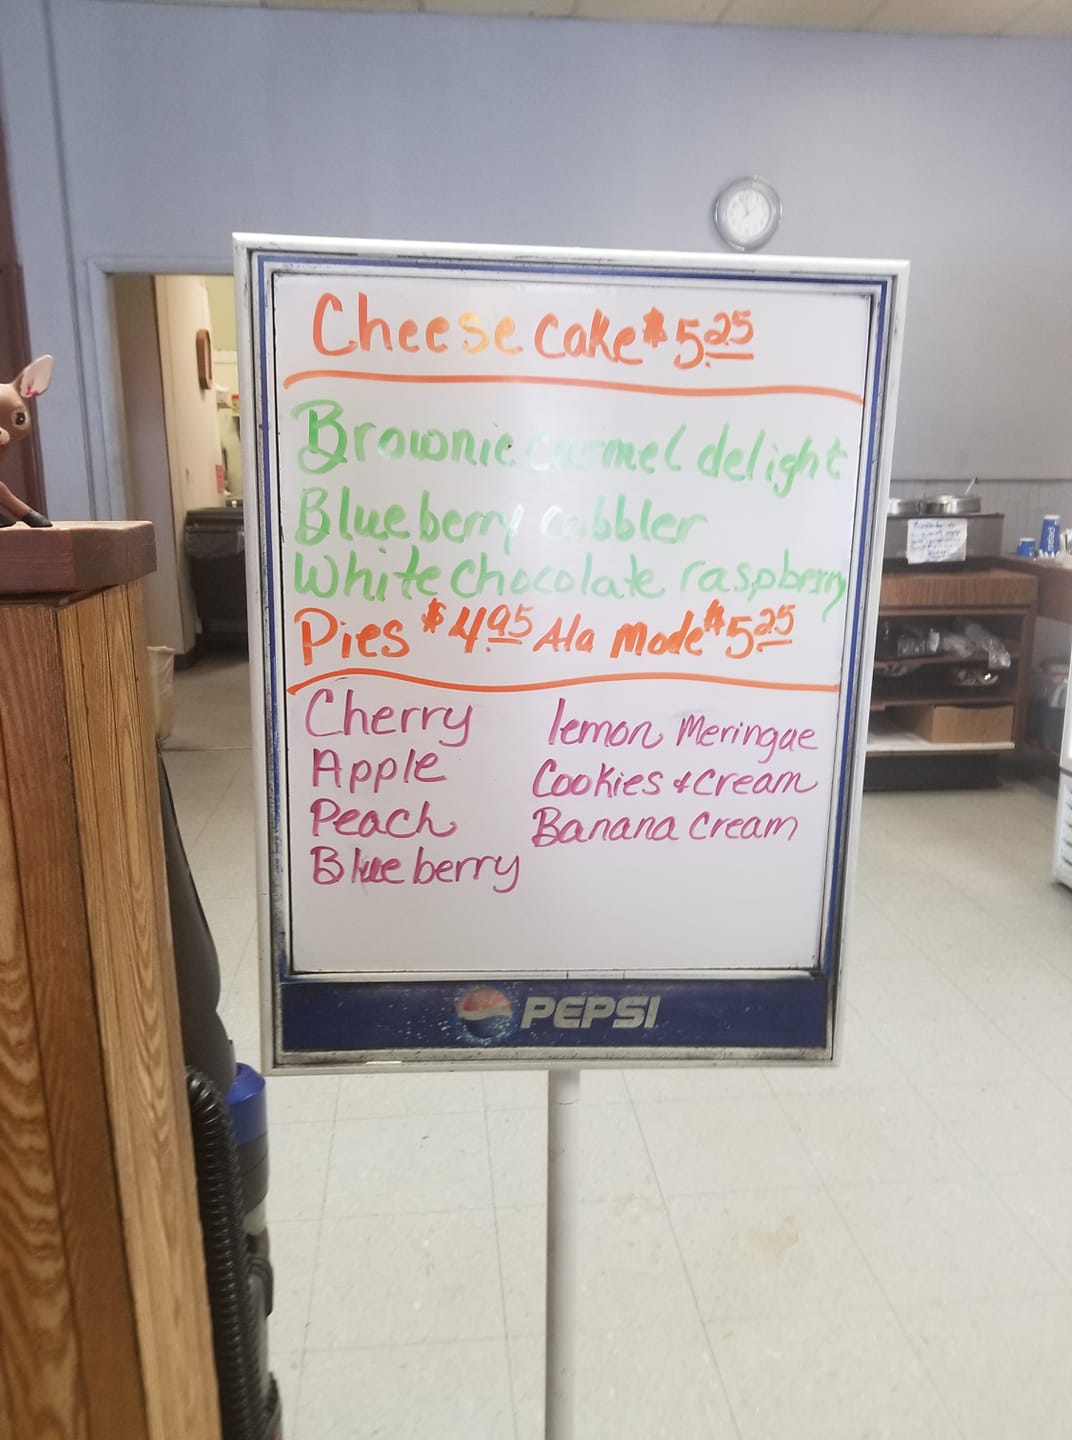 Cheese cake $5.25
Brownie carmel delight
Blueberry cobbler
White chocolate raspberry
Pies $4.95 Ala Mode $5.25
Cherry
Apple
Peach
Blueberry
lemon Meringue
Cookies & Cream
Banana Cream
PEPSI